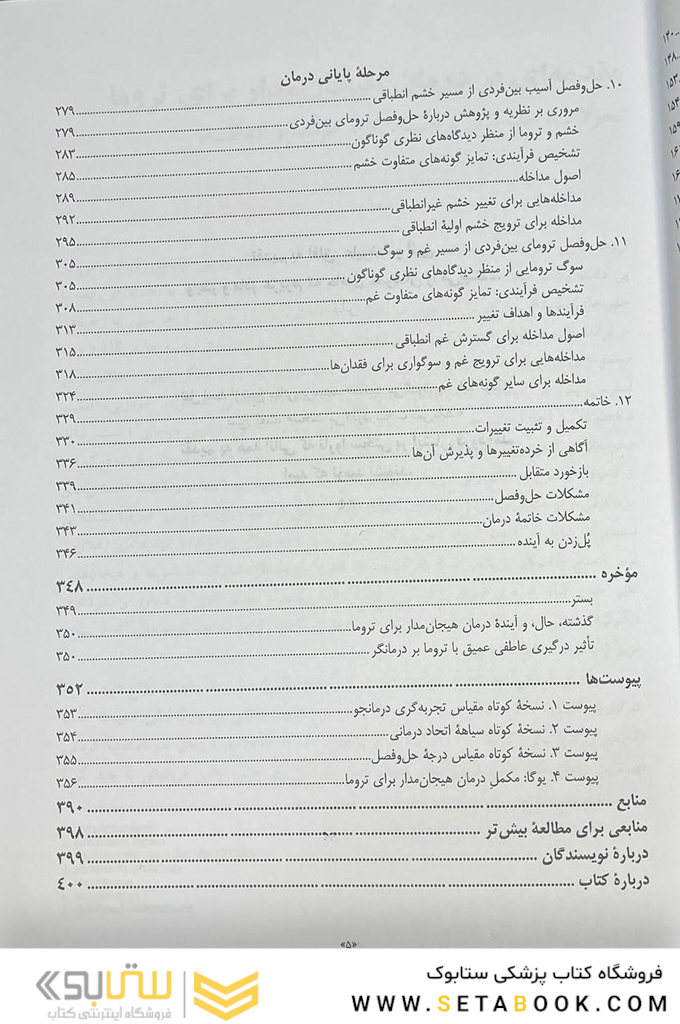 مرحلهٔ پایانی درمان
۱۰. حل‌وفصل آسیب بین‌فردی از مسیر خشم انطباقی ........ ۲۷۹
مروری بر نظریه و پژوهش دربارهٔ حل‌وفصل ترومای بین‌فردی ........ ۲۷۹
خشم و تروما از منظر دیدگاه‌های نظری گوناگون ........ ۲۸۳
تشخیص فرآیندی: تمایز گونه‌های متفاوت خشم ........ ۲۸۵
اصول مداخله ........ ۲۸۹
مداخله‌هایی برای تغییر خشم غیرانطباقی ........ ۲۹۲
مداخله برای ترویج خشم اولیهٔ انطباقی ........ ۲۹۵
۱۱. حل‌وفصل ترومای بین‌فردی از مسیر غم و سوگ ........ ۳۰۵
سوگ ترومایی از منظر دیدگاه‌های نظری گوناگون ........ ۳۰۵
تشخیص فرآیندی: تمایز گونه‌های متفاوت غم ........ ۳۰۸
فرآیندها و اهداف تغییر ........ ۳۱۳
اصول مداخله برای گسترش غم انطباقی ........ ۳۱۵
مداخله‌هایی برای ترویج غم و سوگواری برای فقدان‌ها ........ ۳۱۸
مداخله برای سایر گونه‌های غم ........ ۳۲۴
۱۲. خاتمه ........ ۳۲۹
تکمیل و تثبیت تغییرات ........ ۳۳۰
آگاهی از خرده‌تغییرها و پذیرش آن‌ها ........ ۳۳۶
بازخورد متقابل ........ ۳۳۹
مشکلات حل‌وفصل ........ ۳۴۱
مشکلات خاتمهٔ درمان ........ ۳۴۳
پُل‌زدن به آینده ........ ۳۴۶
مؤخره ........ ۳۴۸
بستر ........ ۳۴۹
گذشته، حال، و آیندهٔ درمان هیجان‌مدار برای تروما ........ ۳۵۰
تأثیر درگیری عاطفی عمیق با تروما بر درمانگر ........ ۳۵۰
پیوست‌ها ........ ۳۵۲
پیوست ۱. نسخهٔ کوتاه مقیاس تجربه‌گری درمانجو ........ ۳۵۳
پیوست ۲. نسخهٔ کوتاه سیاههٔ اتحاد درمانی ........ ۳۵۴
پیوست ۳. نسخهٔ کوتاه مقیاس درجهٔ حل‌وفصل ........ ۳۵۵
پیوست ۴. یوگا: مکملِ درمان هیجان‌مدار برای تروما ........ ۳۵۶
منابع ........ ۳۹۰
منابعی برای مطالعهٔ بیش‌تر ........ ۳۹۸
دربارهٔ نویسندگان ........ ۳۹۹
دربارهٔ کتاب ........ ۴۰۰
«۵»
فروشگاه کتاب پزشکی ستابوک
WWW.SETABOOK.COM
ستابوک
فروشگاه اینترنتی کتاب